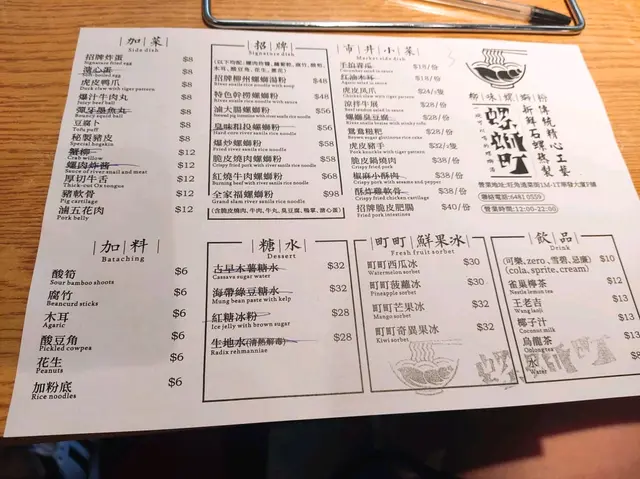 加菜
Side dish
招牌炸蛋 $8
Signature fried egg
溏心蛋 $8
Soft-boiled egg
虎皮鴨爪 $8
Duck claw with tiger pattern
爆汁牛肉丸 $8
Juicy beef ball
彈牙墨魚丸 $8
Bouncy squid ball
豆腐卜 $8
Tofu puff
秘製豬皮 $8
Special hogskin
蟹柳 $12
Crab willow
螺肉炸醬 $12
Sauce of river snail and meat
厚切牛舌 $12
Thick-cut Ox tongue
豬軟骨 $12
Pig cartilage
滷五花肉 $12
Pork belly
招牌
Signature dish
招牌柳州螺螄湯粉 $48
River snails rice noodle with soup
特色幹撈螺螄粉 $48
River snails rice noodle
滷大腸螺螄粉 $56
臭味相投螺螄粉 $56
Hard core river snails rice noodle
爆炒螺螄粉 $58
Fried river snails rice noodle
脆皮燒肉螺螄粉 $58
Crispy fried pork with river snails rice noodle
紅燒牛肉螺螄粉 $68
全家福螺螄粉 $98
Grand slam river snails rice noodle
(含脆皮燒肉, 牛肉, 牛丸, 臭豆腐, 鴨掌, 溏心蛋)
市井小菜
Signature dish
手拍青瓜 $18/份
Cucumber salad in sauce
紅油木耳 $18/份
Agaric salad in sauce
虎皮鳳爪 $24/份
Chicken claw with tiger pattern
涼拌牛展 $28/份
Beef shank salad in sauce
螺螄臭豆腐 $28/份
鴛鴦糍粑 $28/份
Brown sugar glutinous rice cake
虎皮豬手 $32/隻
Pork knuckle with tiger pattern
脆皮鍋燒肉 $38/份
Crispy fried pork
椒麻小酥肉 $38/份
Crispy pork with sesame and pepper
酥炸雞軟骨 $38/份
Crispy fried chicken cartilage
招牌脆皮肥腸 $40/份
Fried pork intestines
椰味螺螄粉
螺螄町
傳統精心工藝
新鮮石螺熬製
營業地址:旺角通菜街1M-1T華發大廈F鋪
聯絡電話:6481 0559
營業時間:12:00-22:00
加料
Bataching
酸筍 $6
Sour bamboo shoots
腐竹 $6
Beancurd sticks
木耳 $6
Agaric
酸豆角 $6
Pickled cowpea
花生 $6
Peanuts
加粉底 $6
Rice noodles
糖水
Dessert
古早木薯糖水 $32
Cassava sugar water
海帶綠豆糖水 $32
Mung bean paste with kelp
紅糖冰粉 $28
Ice jelly with brown sugar
生地水(清熱解毒) $28
Radix rehmanniae
町町鮮果冰
Fresh fruit sorbet
町町西瓜冰 $30
Watermelon sorbet
町町菠蘿冰 $30
Pineapple sorbet
町町芒果冰 $32
Mango sorbet
町町奇異果冰 $32
Kiwi sorbet
飲品
Drink
(可樂, zero, 雪碧, 忌廉) $10
(cola, sprite, cream)
雀巢檸茶 $12
Nestle lemon tea
王老吉 $13
Wang laoji
椰子汁 $13
Coconut milk
烏龍茶 $13
Oolong tea
水 $8
Water